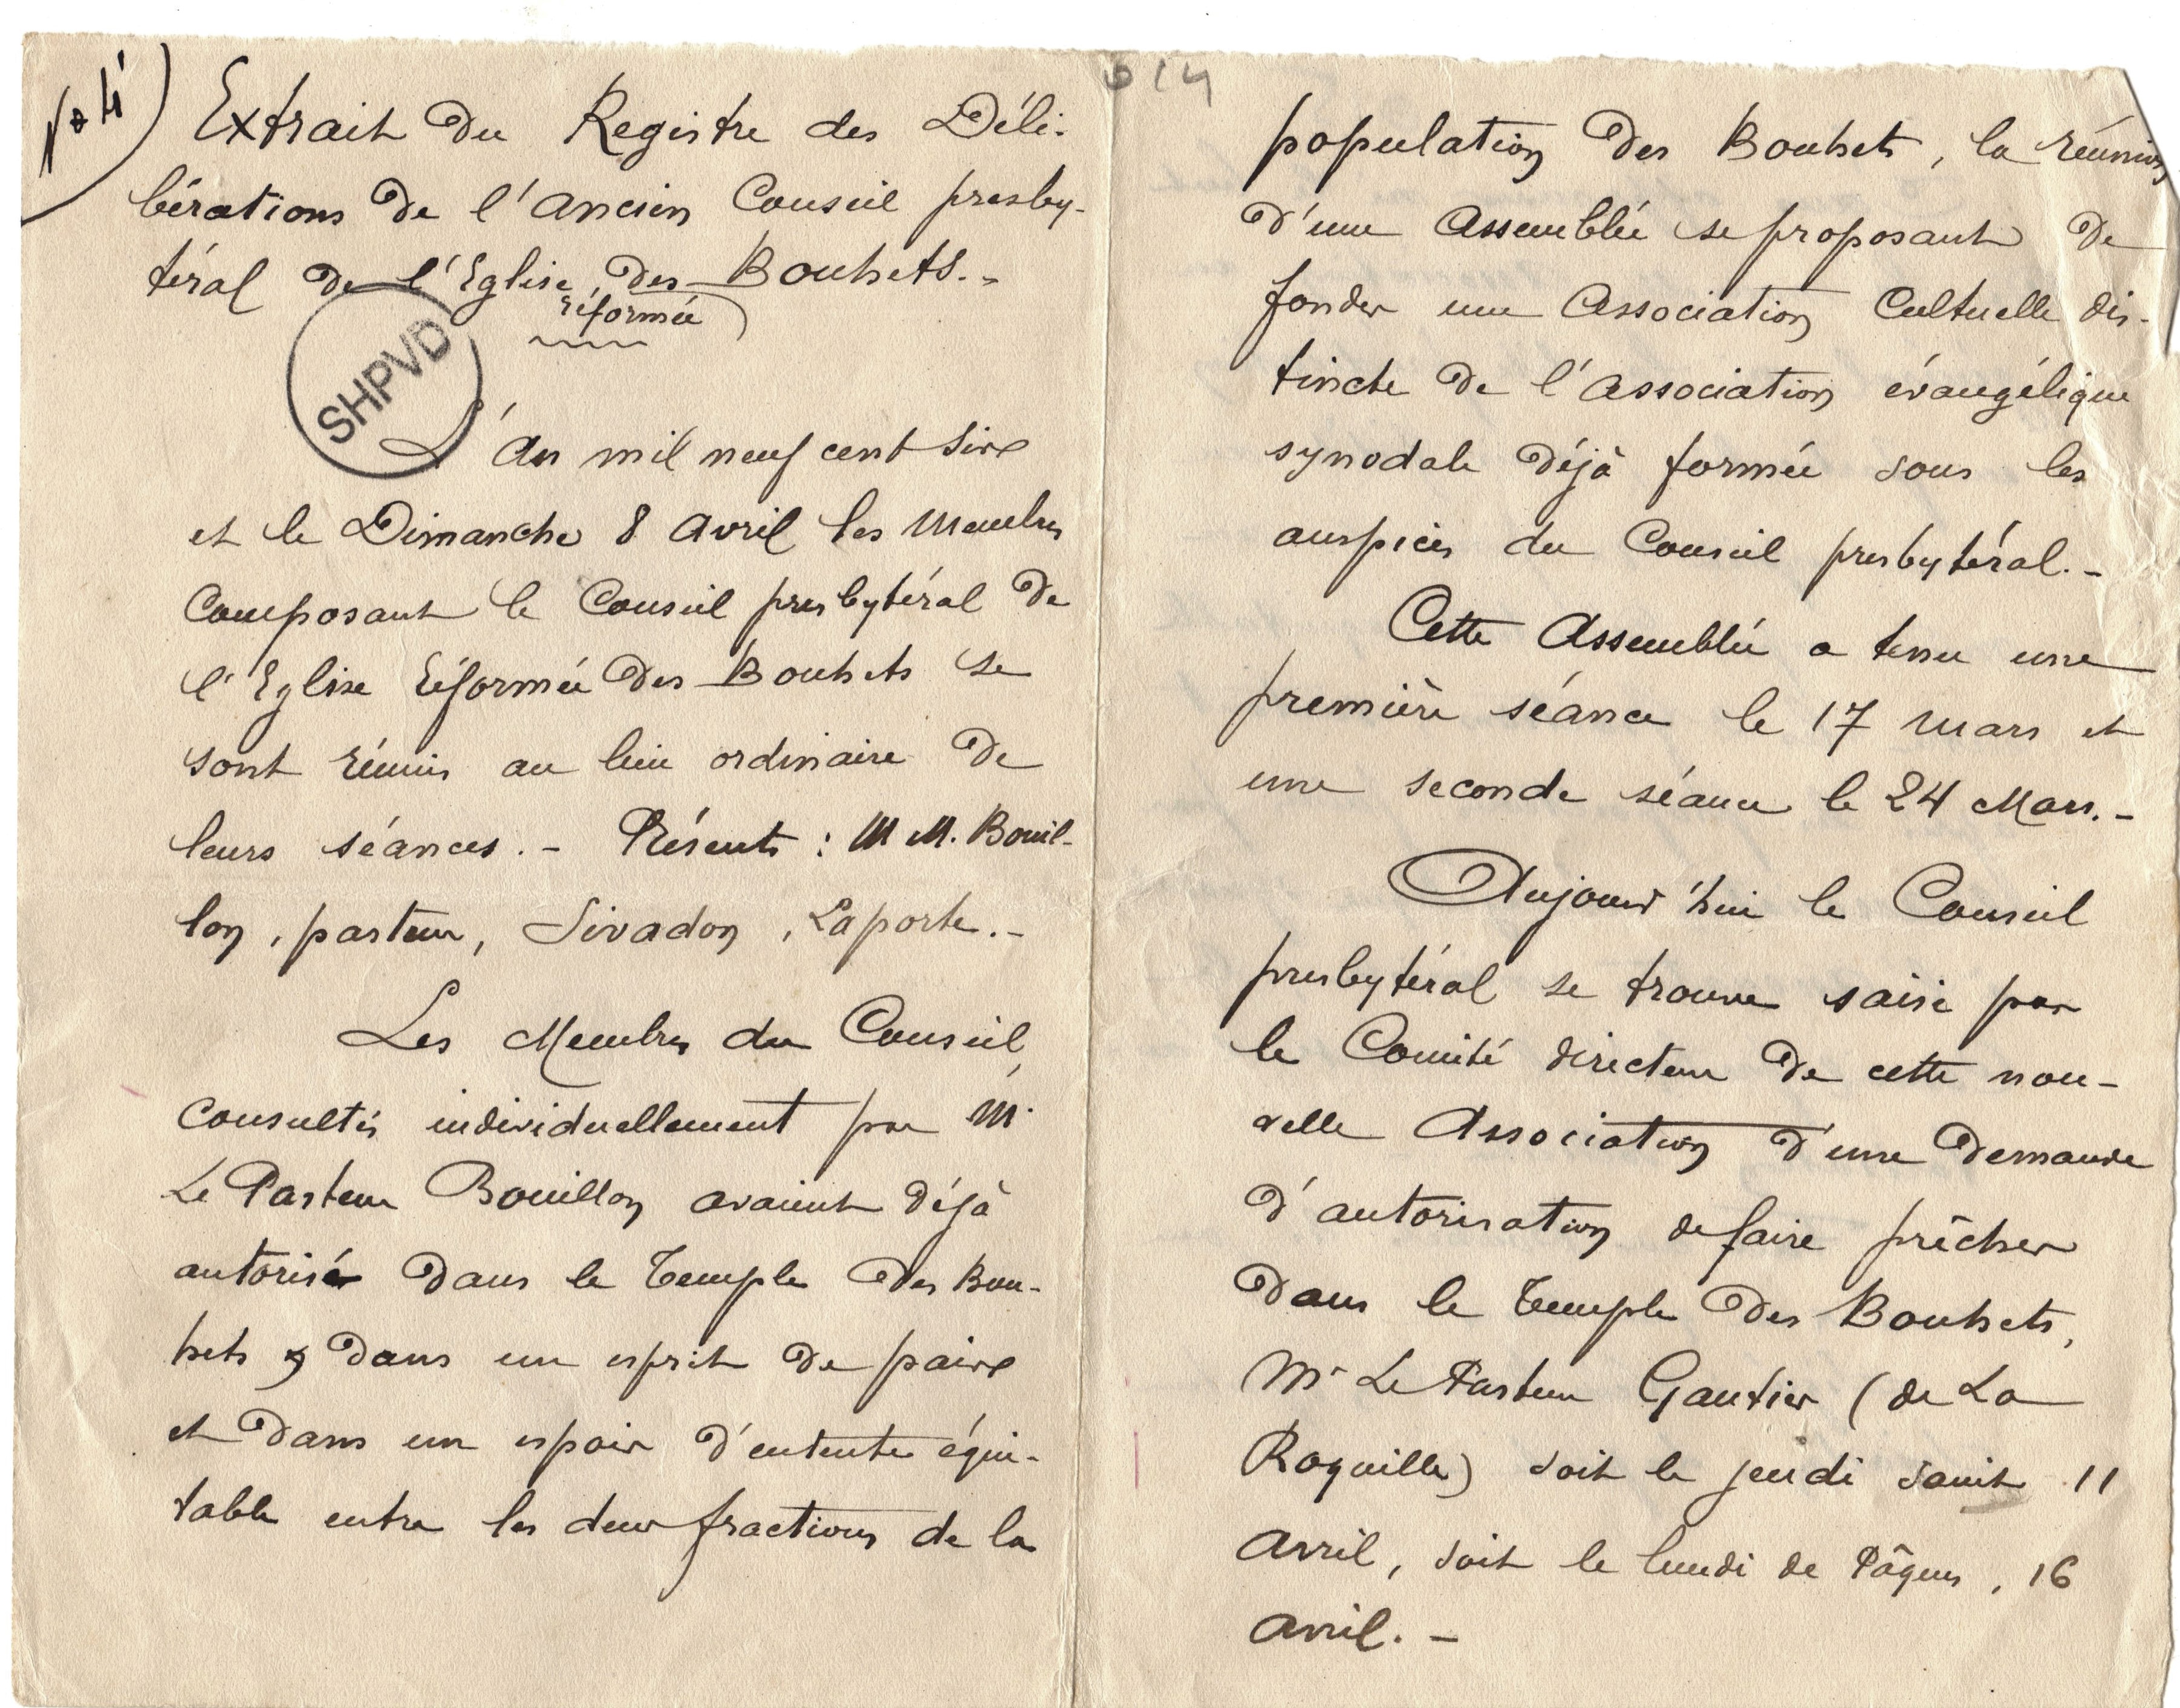 No 4)
Extrait du Registre des Déli-
bérations de l'Ancien Conseil presby-
téral de l'Eglise des Bouhets.-
réformée
SHPVD
L'An mil neuf cent six
et le Dimanche 8 Avril les Membres
Composant le Conseil presbytéral de
l'Eglise réformée des Bouhets se
sont réunis au lieu ordinaire de
leurs séances. - Présents : M M. Bouil-
lon, pasteur, Sivadon, Laporte. -
Les Membres du Conseil,
consultés individuellement par M.
Le Pasteur Bouillon avaient déjà
autorisé dans le Temple des Bou-
hets, dans un esprit de paix
et dans un espoir d'entente équi-
table entre les deux fractions de la
614
population des Bouhets, la réunion
d'une Assemblée se proposant de
fonder une Association Cultuelle dis-
tincte de l'Association évangélique
synodale déjà formée sous les
auspices du Conseil presbytéral. -
Cette Assemblée a tenu une
première séance le 17 Mars et
une seconde séance le 24 Mars. -
Aujourd'hui le Conseil
presbytéral se trouve saisi par
le Comité directeur de cette nou-
velle Association d'une demande
d'autorisation de faire prêcher
dans le Temple des Bouhets,
Mr Le Pasteur Gautier (de La
Roquille) soit le jeudi saint 11
Avril, soit le lundi de Pâques, 16
Avril. -